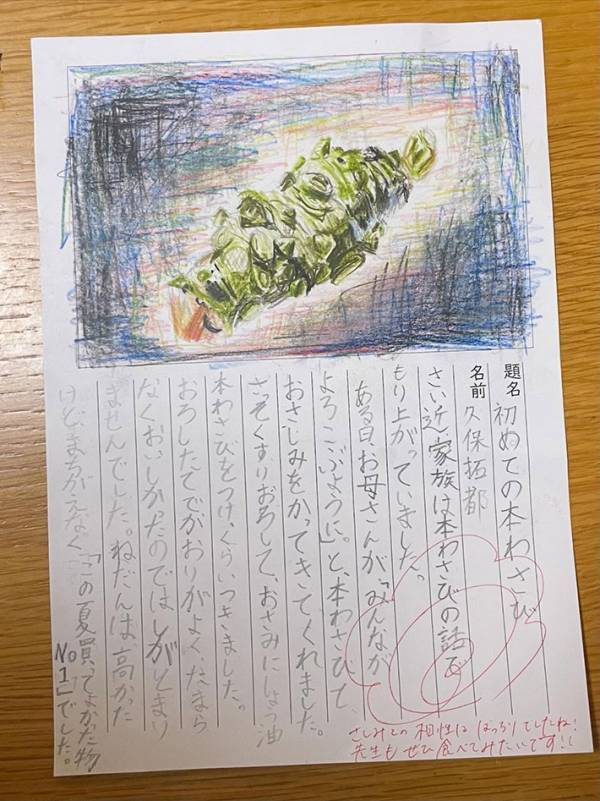 題名 初めての本わさび
名前 久保拓都
さい近、家族は本わさびの話で
もり上がっていました。
ある日、お母さんが、「みんなが
よろこぶように。」と、本わさびと、
おさしみをかってきてくれました。
さっそくすりおろして、おさみにしょう油
本わさびをつけ、くらいつきました。
おろしたてでかおりがよく、たまら
なくおいしかったのではしがとまり
ませんでした。ねだんは、高かった
けど、まちがえなく「この夏買ってよかった物
No1」でした。
さしみとの相性はばっちりでしたね!
先生もぜひ食べてみたいです!!